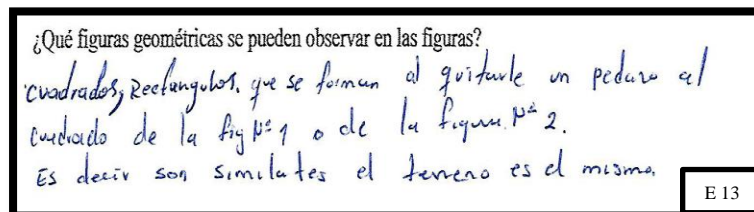 ¿Qué figuras geométricas se pueden observar en las figuras?
Cuadrados, Rectangulos. que se forman al quitarle un pedazo al
Cuadrado de la fig Nº 1 o de la figura Nº 2.
Es decir son similates el terreno es el mismo.
E 13